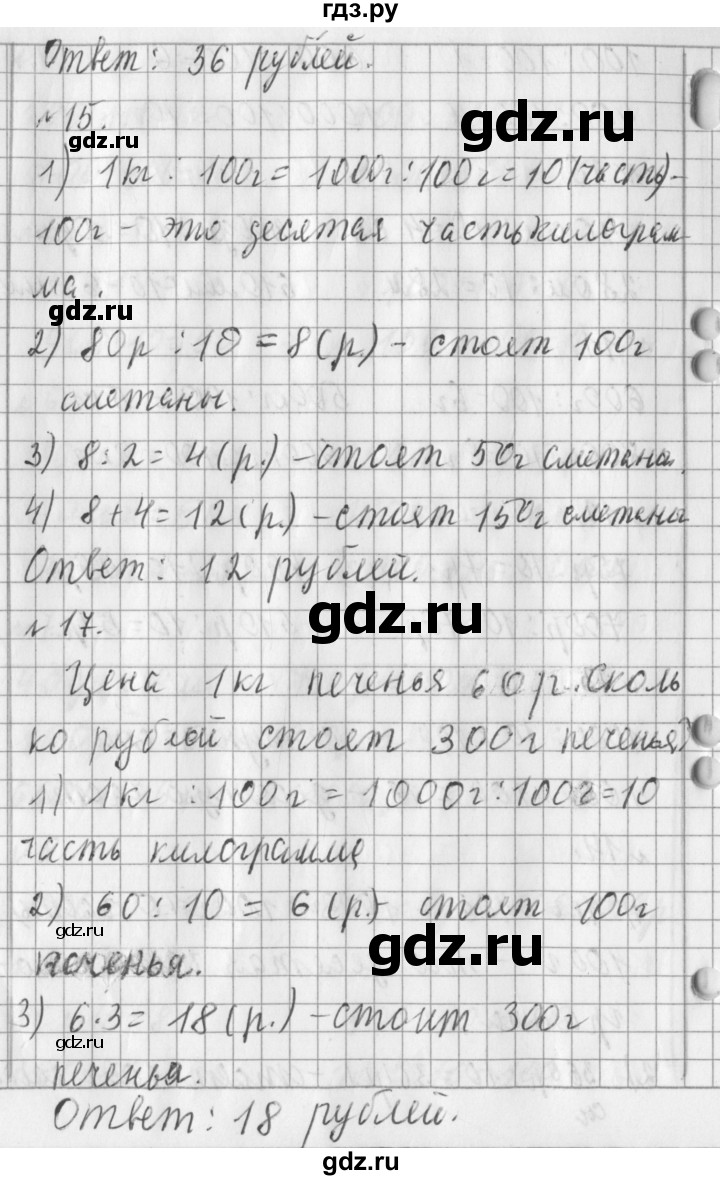 гдз.ру
Ответ: 36 рублей.
№15.
gdz.ru
gdz.ru
1) 1кг : 100г = 1000г : 100г = 10 (часть) -
100г - это десятая часть килограм-
ма.
gdz.ru
2) 80р : 10 = 8 (р.) - стоят 100г
сметаны.
3) 8 : 2 = 4 (р.) - стоят 50г сметаны.
4) 8 + 4 = 12 (р.) - стоят 150г сметаны
Ответ: 12 рублей.
№17.
gdz.ru
Цена 1кг печенья 60р. Сколь
ко рублей стоят 300г печенья?
1) 1кг : 100г = 1000г : 100г = 10
часть килограмма
2) 60 : 10 = 6 (р.) - стоят 100г
gdz.ru
gdz.ru
печенья.
3) 6 · 3 = 18 (р.) - стоит 300г
gdz.ru
печенья.
Ответ: 18 рублей.
gdz.ru